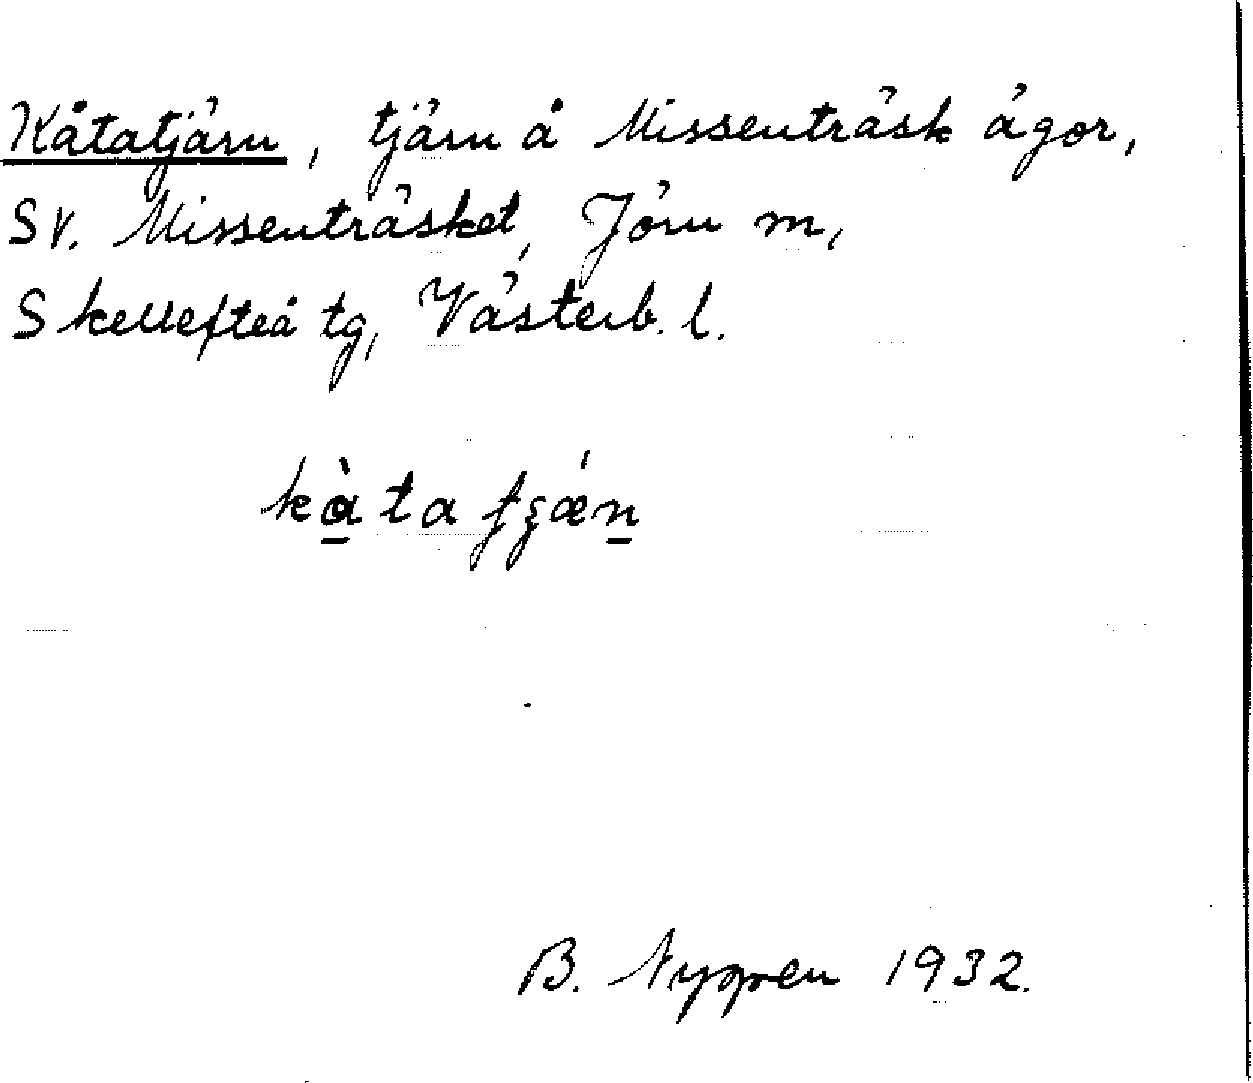 Kåtatjärn, tjärn å Missenträsk ägor,
SV. Missenträsket, Jörn m,
Skellefteå tg, Västerb. l.
kàta
B. Nygren 1932.